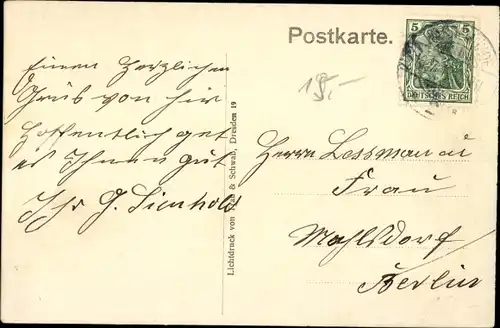 Postkarte.
5
DEUTSCHES REICH
19,-
Einen Herzlichen
Gruß von hir
Hoffentlich get
es Ihnen gut
Ihr G. Lienhold
Lichtdruck von & Schwab, Dresden 19
Herrn Lessmann u
Frau
Mahlsdorf
Berlin